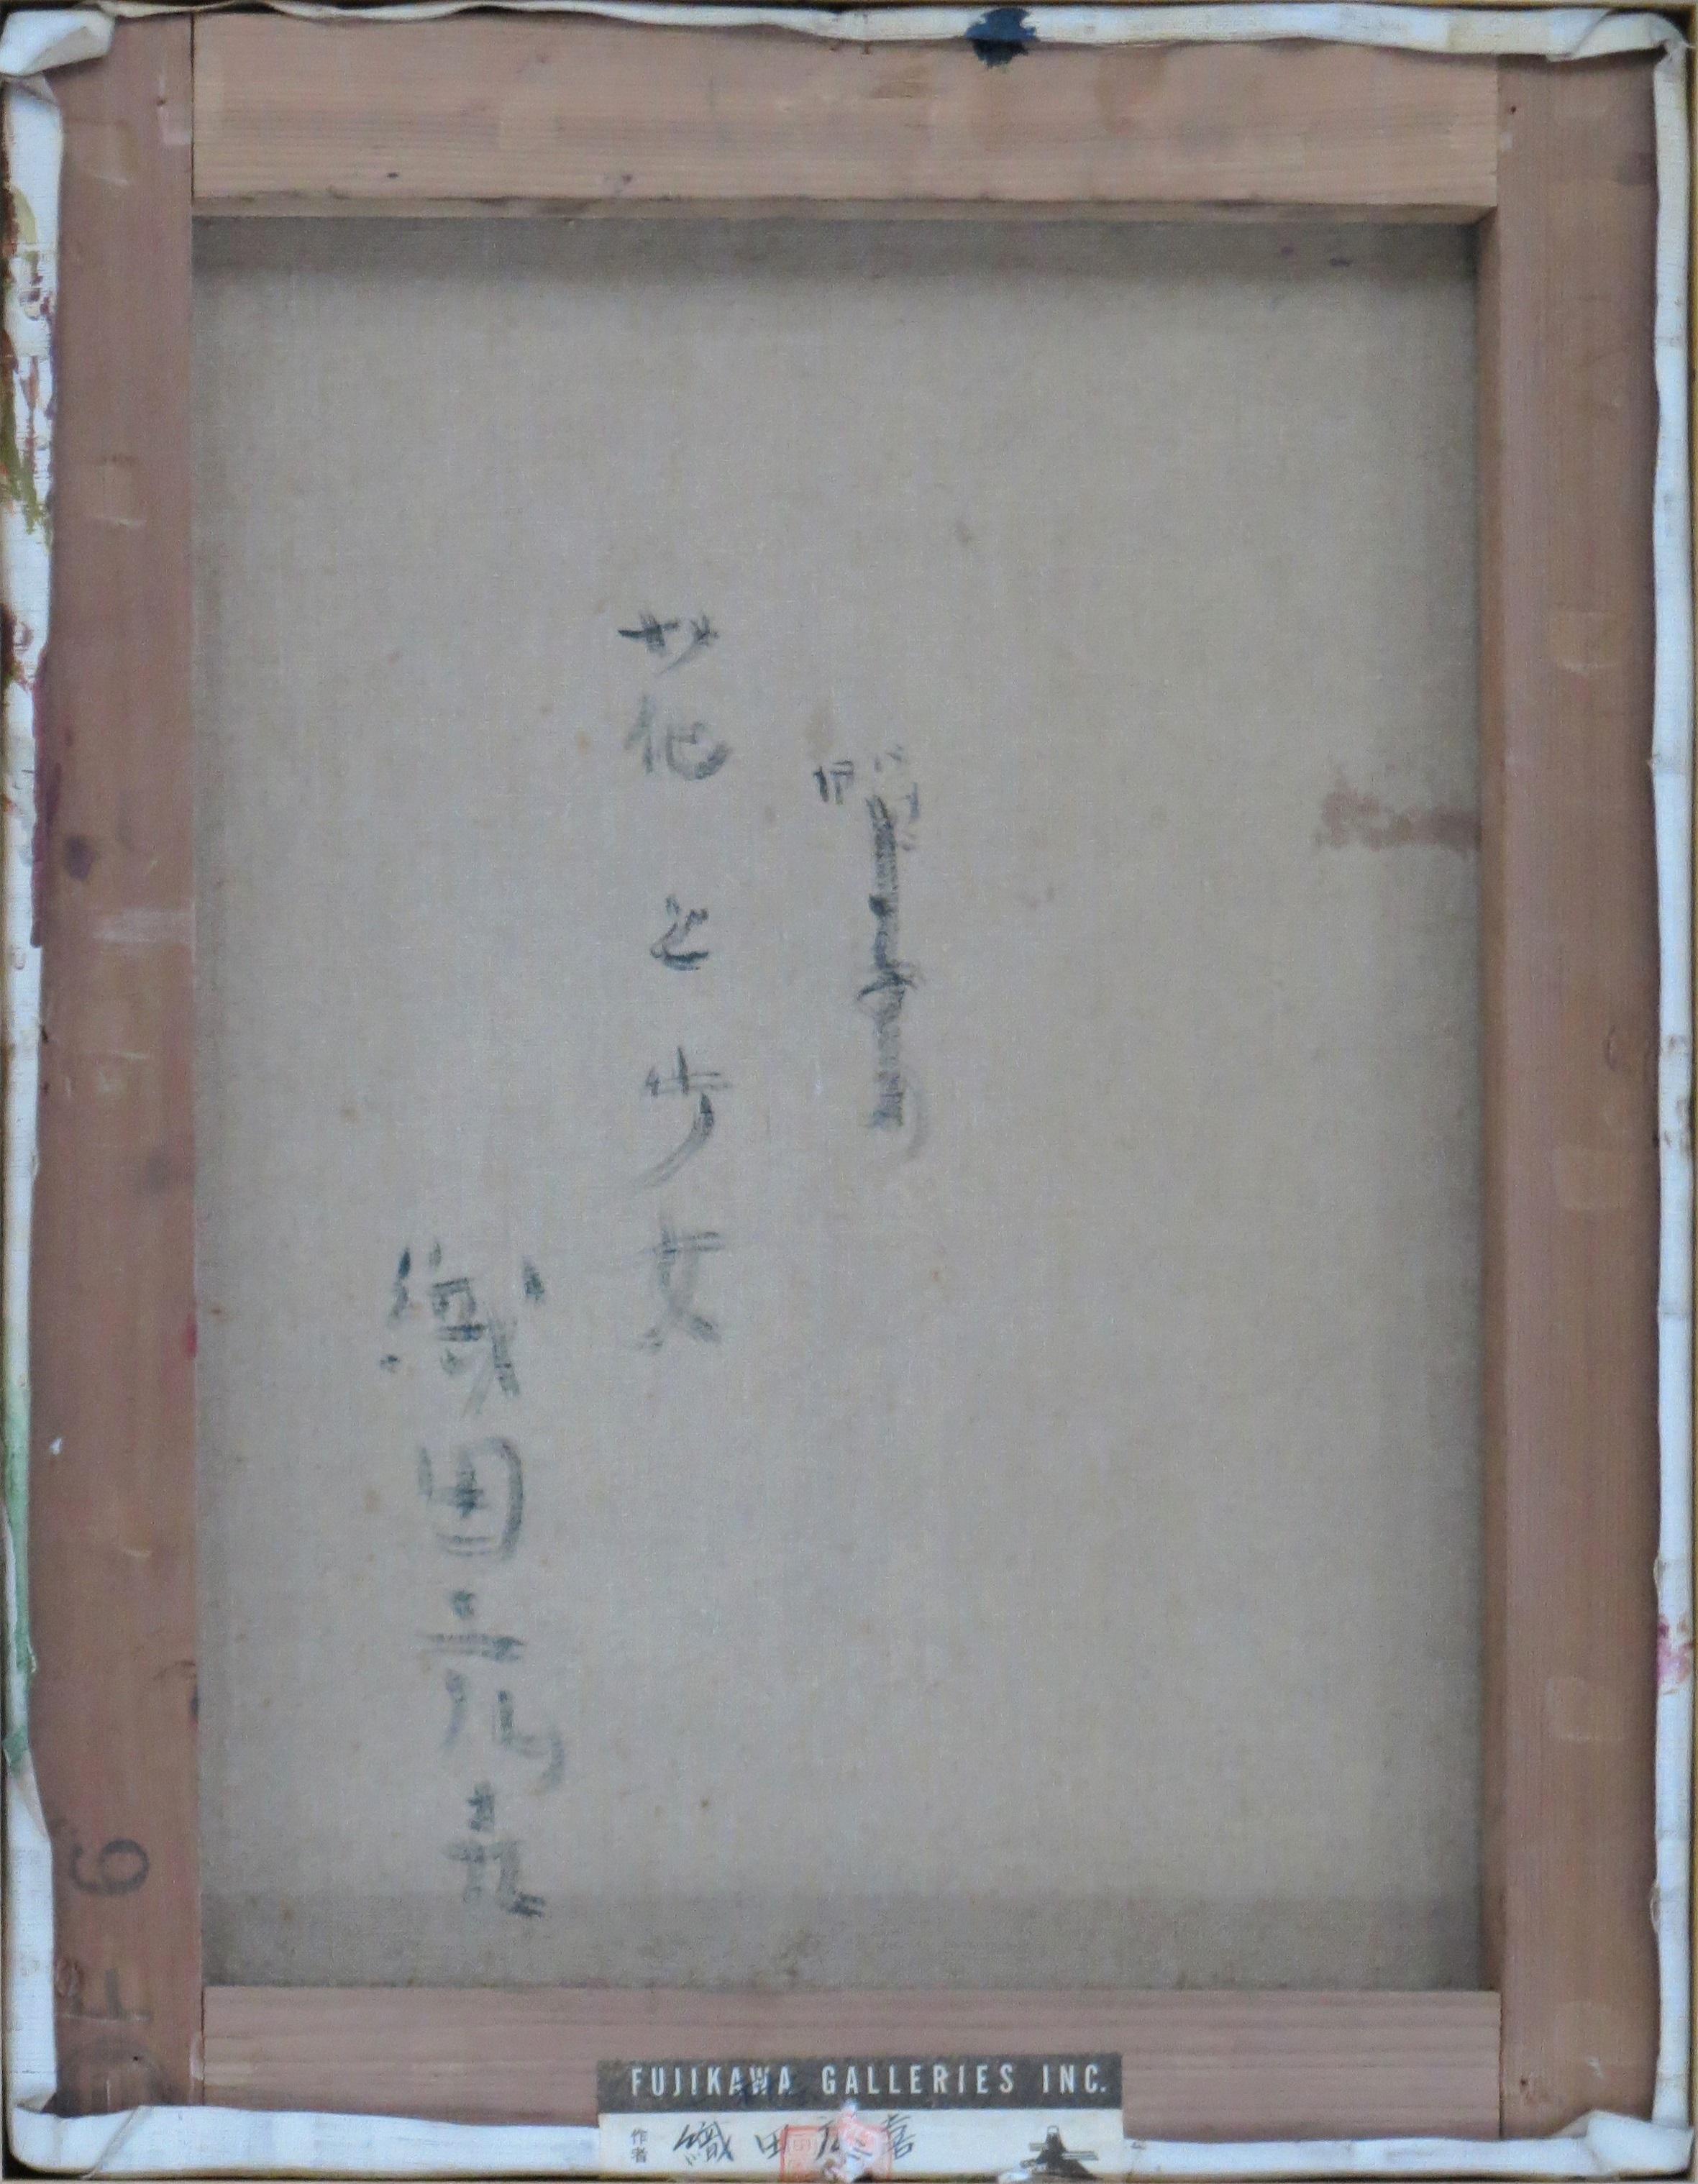 花と少女
織田広喜
F6
FUJIKAWA GALLERIES INC.
作者 織田広喜